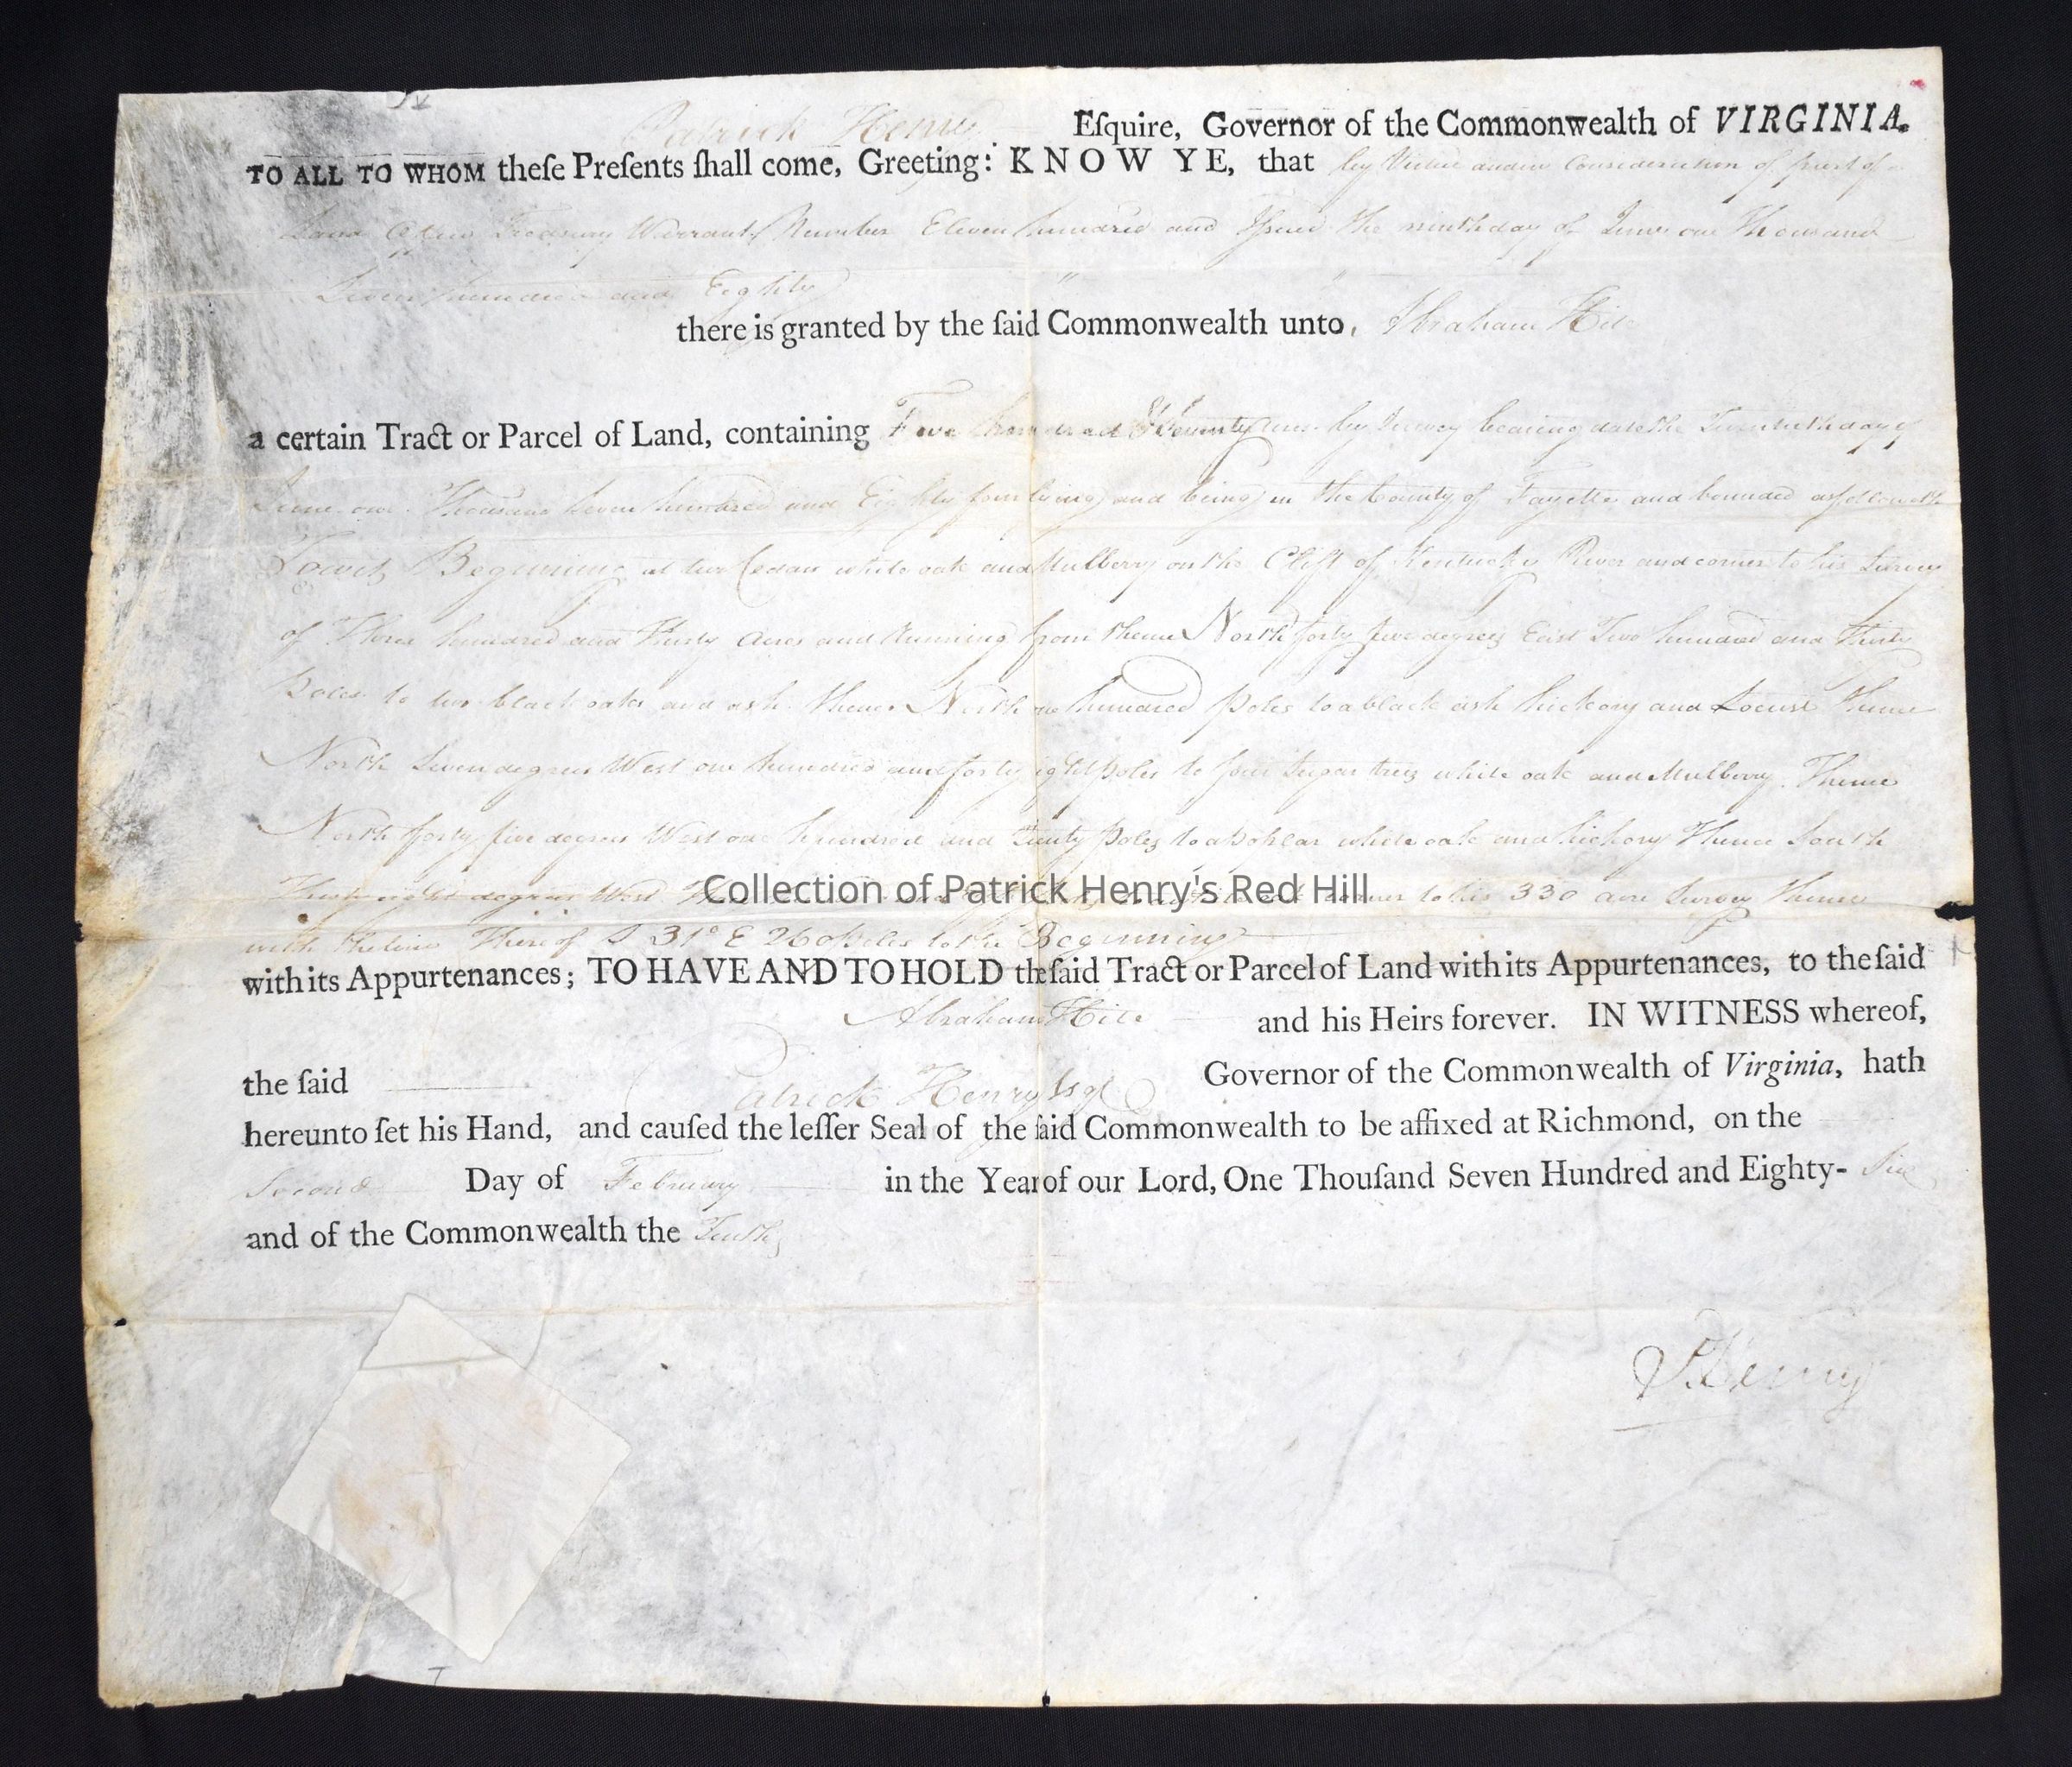 Patrick Henry Eſquire, Governor of the Commonwealth of VIRGINIA.
TO ALL TO WHOM theſe Preſents ſhall come, Greeting: KNOW YE, that by Virtue and in Consideration of part of
Land Treasury Warrant Number Eleven hundred and Issued the ninth day of June one Thousand
Seven hundred and Eighty
there is granted by the ſaid Commonwealth unto, Abraham Hite
a certain Tract or Parcel of Land, containing Five hundred & Seventy acres by Survey bearing date the Twentieth day of
June one Thousand Seven hundred and Eighty four lying and being in the County of Fayette and bounded as followeth
Towit, Beginning at two Cedars white oak and Mulberry on the Clift of Kentucky River and corner to his Survey
of Three hundred and Thirty Acres and Running from thence North forty five degrees East Two hundred and thirty
Poles to two black oaks and ash thence North one hundred poles to a black ash hickory and Locust Thence
North Seven degrees West one hundred and forty eight poles to four Sugar trees white oak and Mulberry. Thence
North forty five degrees West one hundred and Twenty poles to a poplar white oak and hickory Thence South
Thirty eight degrees West corner to his 330 acre Survey Thence
with the line Thereof S 31° E 260 poles to the Beginning
with its Appurtenances; TO HAVE AND TO HOLD the ſaid Tract or Parcel of Land with its Appurtenances, to the ſaid
Abraham Hite and his Heirs forever. IN WITNESS whereof,
the ſaid Patrick Henry Esqr Governor of the Commonwealth of Virginia, hath
hereunto ſet his Hand, and cauſed the leſſer Seal of the ſaid Commonwealth to be affixed at Richmond, on the
Second Day of February in the Year of our Lord, One Thouſand Seven Hundred and Eighty- Six
and of the Commonwealth the Tenth
P. Henry
Collection of Patrick Henry's Red Hill